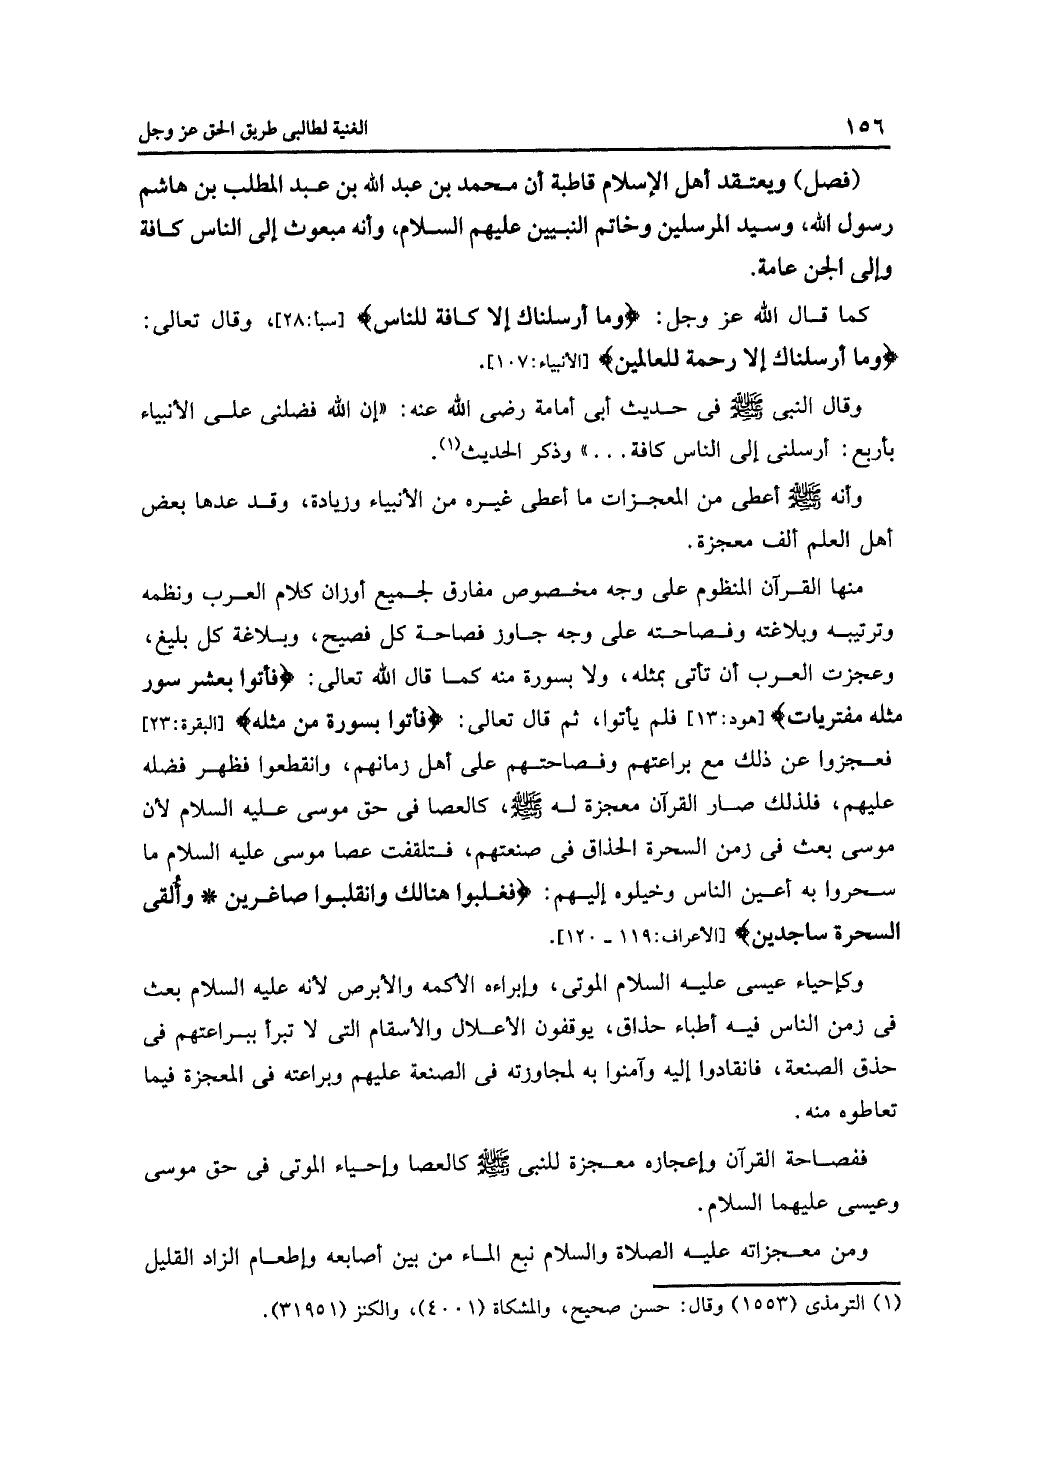 ١٥٦ الغنية لطالبى طريق الحق عز وجل
(فصل) ويعتقد أهل الإسلام قاطبة أن محمد بن عبد الله بن عبد المطلب بن هاشم
رسول الله، وسيد المرسلين وخاتم النبيين عليهم السلام، وأنه مبعوث إلى الناس كافة
وإلى الجن عامة.
كما قال الله عز وجل: ﴿وما أرسلناك إلا كافة للناس﴾ [سبأ:٢٨]، وقال تعالى:
﴿وما أرسلناك إلا رحمة للعالمين﴾ [الأنبياء:١٠٧].
وقال النبى ﷺ فى حديث أبى أمامة رضى الله عنه: «إن الله فضلنى على الأنبياء
بأربع: أرسلنى إلى الناس كافة...» وذكر الحديث(١).
وأنه ﷺ أعطى من المعجزات ما أعطى غيره من الأنبياء وزيادة، وقد عدها بعض
أهل العلم ألف معجزة.
منها القرآن المنظوم على وجه مخصوص مفارق لجميع أوزان كلام العرب ونظمه
وترتيبه وبلاغته وفصاحته على وجه جاوز فصاحة كل فصيح، وبلاغة كل بليغ،
وعجزت العرب أن تأتى بمثله، ولا بسورة منه كما قال الله تعالى: ﴿فأتوا بعشر سور
مثله مفتريات﴾ [هود:١٣] فلم يأتوا، ثم قال تعالى: ﴿فأتوا بسورة من مثله﴾ [البقرة:٢٣]
فعجزوا عن ذلك مع براعتهم وفصاحتهم على أهل زمانهم، وانقطعوا فظهر فضله
عليهم، فلذلك صار القرآن معجزة له ﷺ، كالعصا فى حق موسى عليه السلام لأن
موسى بعث فى زمن السحرة الحذاق فى صنعتهم، فتلقفت عصا موسى عليه السلام ما
سحروا به أعين الناس وخيلوه إليهم: ﴿فغلبوا هنالك وانقلبوا صاغرين * وأُلقى
السحرة ساجدين﴾ [الأعراف:١١٩ ـ ١٢٠].
وكإحياء عيسى عليه السلام الموتى، وإبراءه الأكمه والأبرص لأنه عليه السلام بعث
فى زمن الناس فيه أطباء حذاق، يوقفون الأعلال والأسقام التى لا تبرأ ببراعتهم فى
حذق الصنعة، فانقادوا إليه وآمنوا به لمجاوزته فى الصنعة عليهم وبراعته فى المعجزة فيما
تعاطوه منه.
ففصاحة القرآن وإعجازه معجزة للنبى ﷺ كالعصا وإحياء الموتى فى حق موسى
وعيسى عليهما السلام.
ومن معجزاته عليه الصلاة والسلام نبع الماء من بين أصابعه وإطعام الزاد القليل
(١) الترمذى (١٥٥٣) وقال: حسن صحيح، والمشكاة (٤٠٠١)، والكنز (٣١٩٥١).